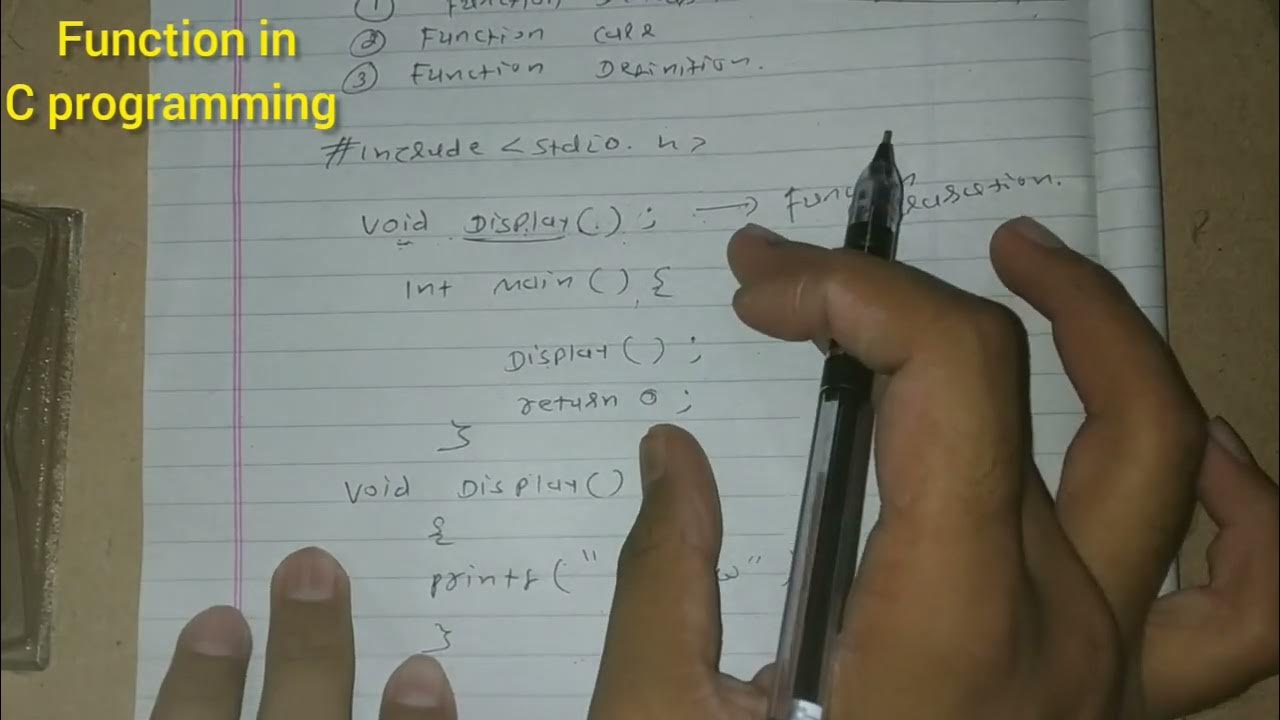 Function in
C programming
① Function
② Function Call
③ Function Definition.
#include <stdio.h>
void Display(.) ; →
int main() {
Display() ;
return 0 ;
}
void Display()
{
printf ( "
}